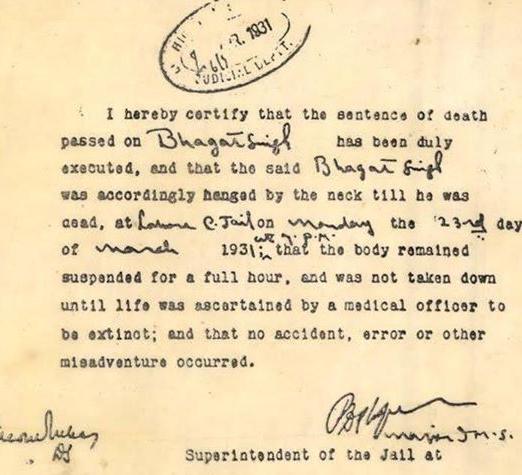 R. 1931
JUDICIAL DEPTT.
I hereby certify that the sentence of death
passed on Bhagat Singh has been duly
executed, and that the said Bhagat Singh
was accordingly hanged by the neck till he was
dead, at Lahore C. Jail on Monday the 23rd day
of March 1931; at 7 P.M. that the body remained
suspended for a full hour, and was not taken down
until life was ascertained by a medical officer to
be extinct; and that no accident, error or other
misadventure occurred.
Major I.M.S.
Superintendent of the Jail at